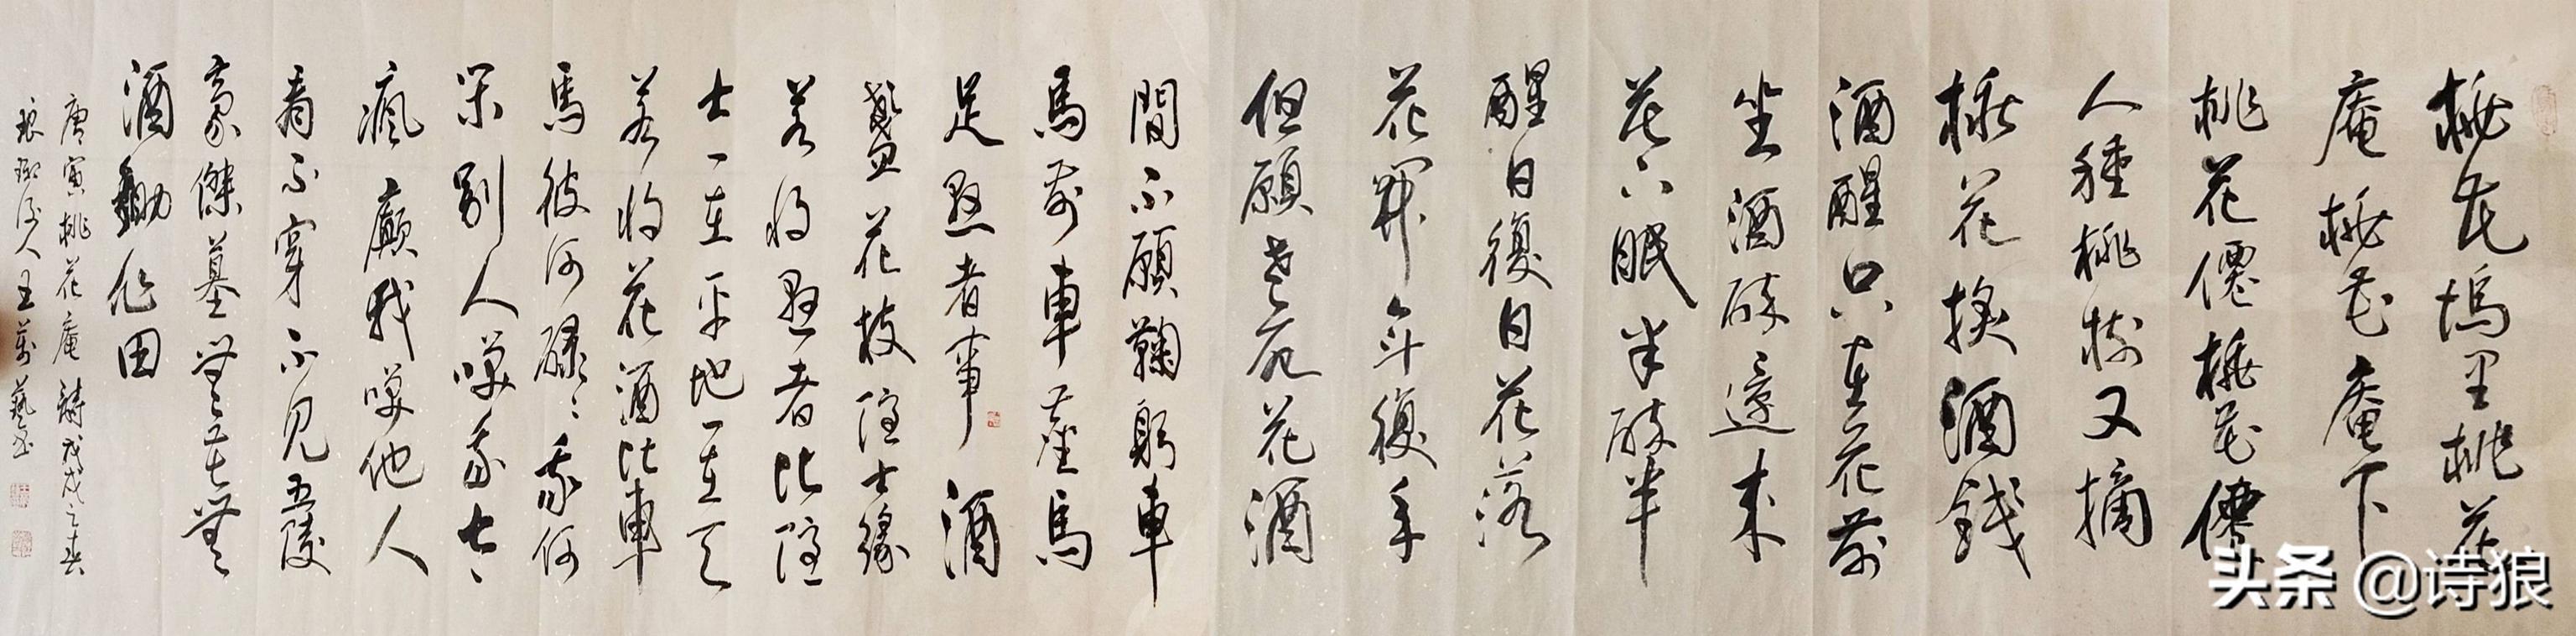 桃花塢里桃花
庵桃花庵下
桃花僊桃花僊
人種桃樹又摘
桃花換酒錢
酒醒只在花前
坐酒醉還來
花下眠半醉半
醒日復日花落
花開年復年
但願老死花酒
間不願鞠躬車
馬前車塵馬
足貴者事酒
盞花枝隱士緣
若將貴者比隱
士一在平地一在天
若將花酒比車
馬彼何碌碌我何
閑別人笑我太
瘋癲我笑他人
看不穿不見五陵
豪傑墓無花無
酒鋤作田
唐寅桃花庵詩戊戌之春
琅琊後人王萬藝書
头条 @诗狼